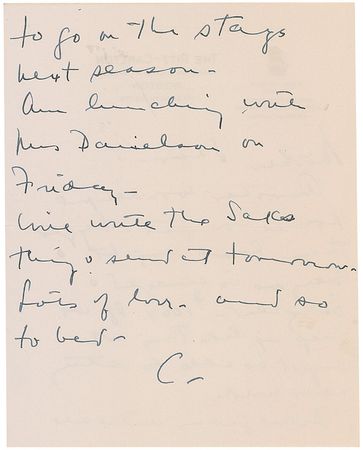 to go on the stage
next season -
Am lunching with
Mrs Danielson on
Friday -
Will write the Saks
thing & send it tomorrow -
Lots of love - and so
to bed -
C -